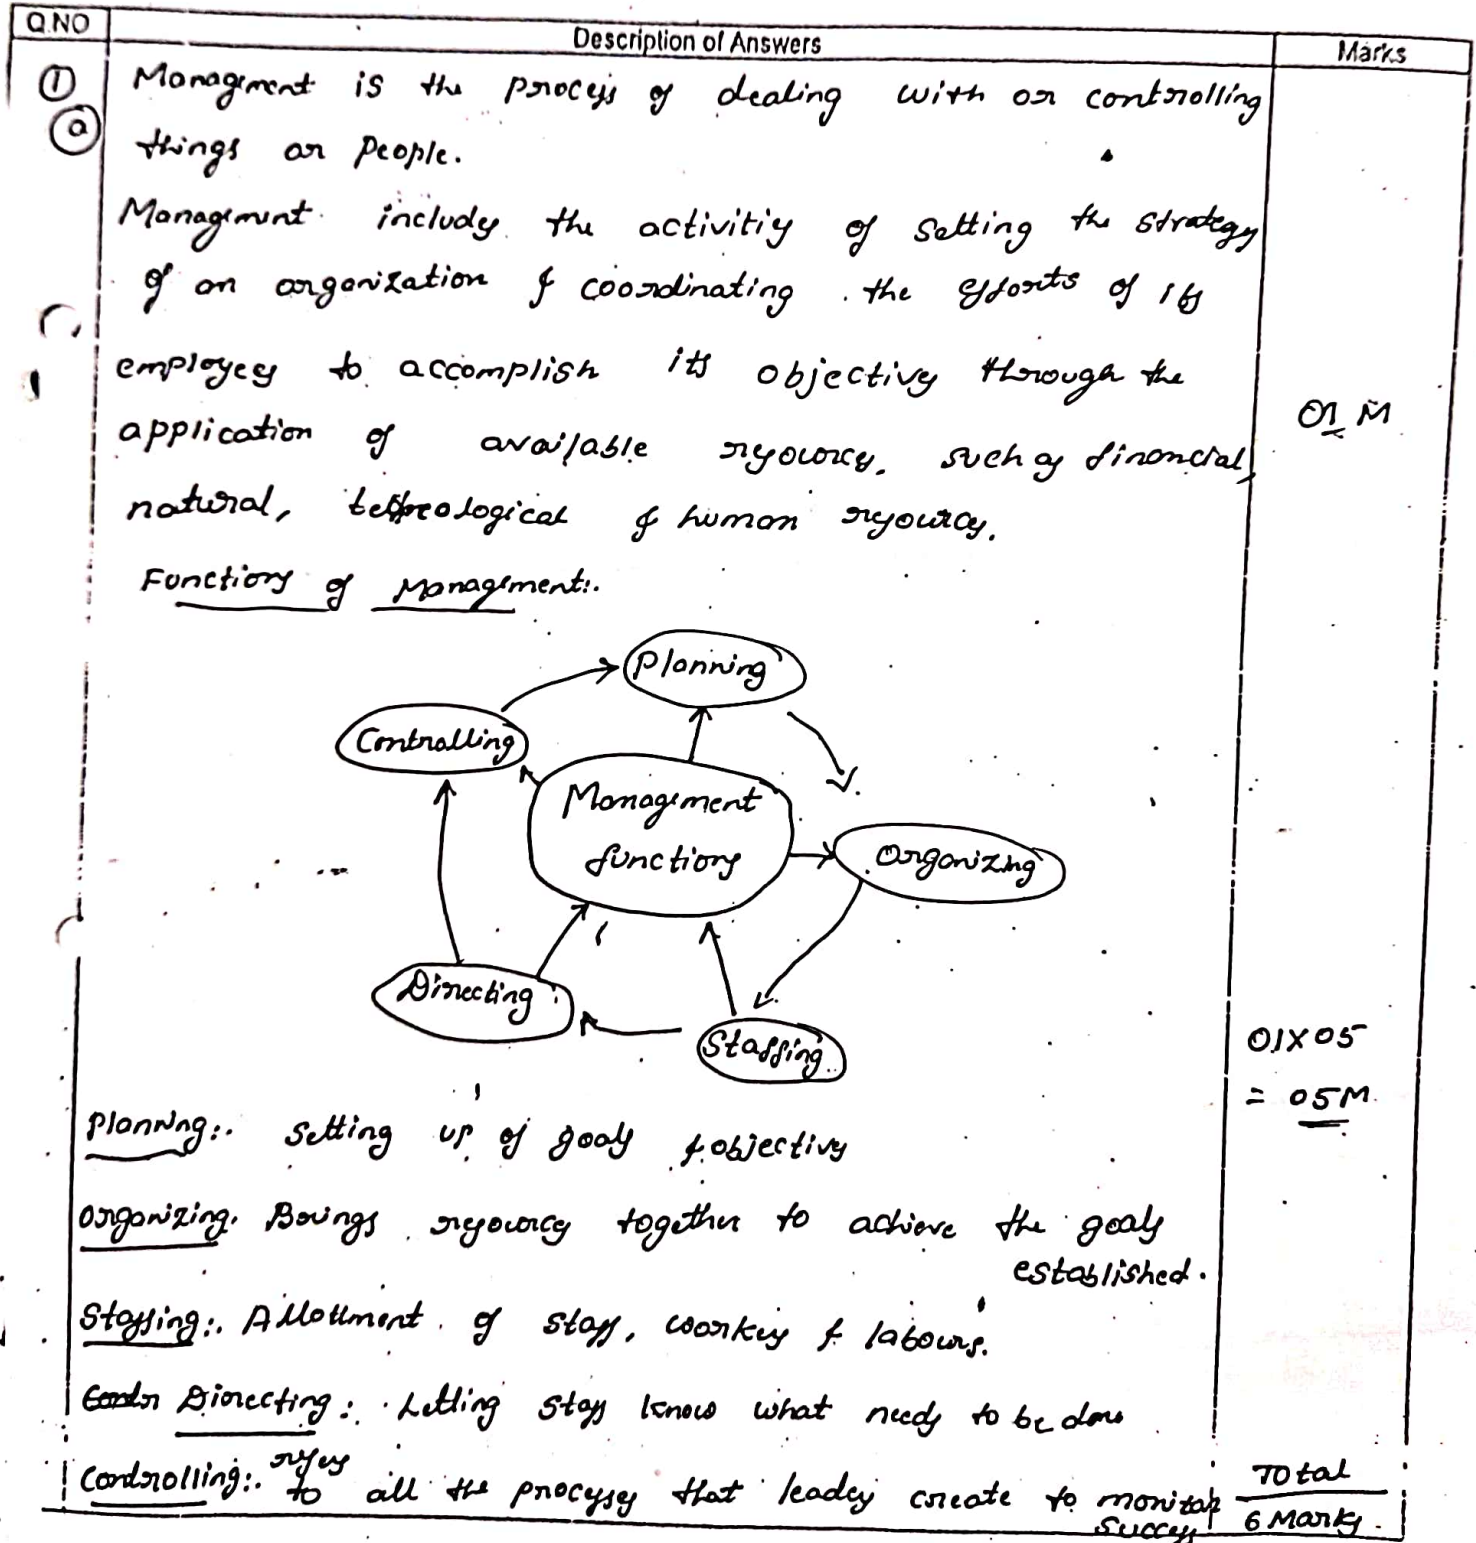 Q.NO Description of Answers Marks
① Management is the process of dealing with or controlling
ⓐ things or People.
Management includes the activities of setting the strategy
of an organization & coordinating the efforts of its
employees to accomplish its objectives through the
application of available resources, such as financial, 01 M
natural, technological & human resources.
Functions of Management:.
Planning
Controlling
Management
functions
Organizing
Directing
Staffing
01X05
= 05M
Planning:. Setting up of goals & objectives
Organizing. Brings resources together to achieve the goals
established.
Staffing:. Allotment of staff, workers & labours.
Contr Directing:. Letting staff know what needs to be done
Controlling:. refers to all the processes that leaders create to monitor
success
Total
6 Marks.